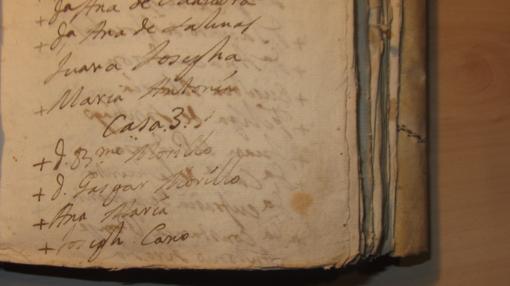 + Dª Ana de
+ Dª Ana de Salinas
Juana Josepha
+ Maria Antonia
Casa 3ª
+ D. Morillo
+ D. Gaspar Morillo
+ Ana Maria
+ Joseph Cano